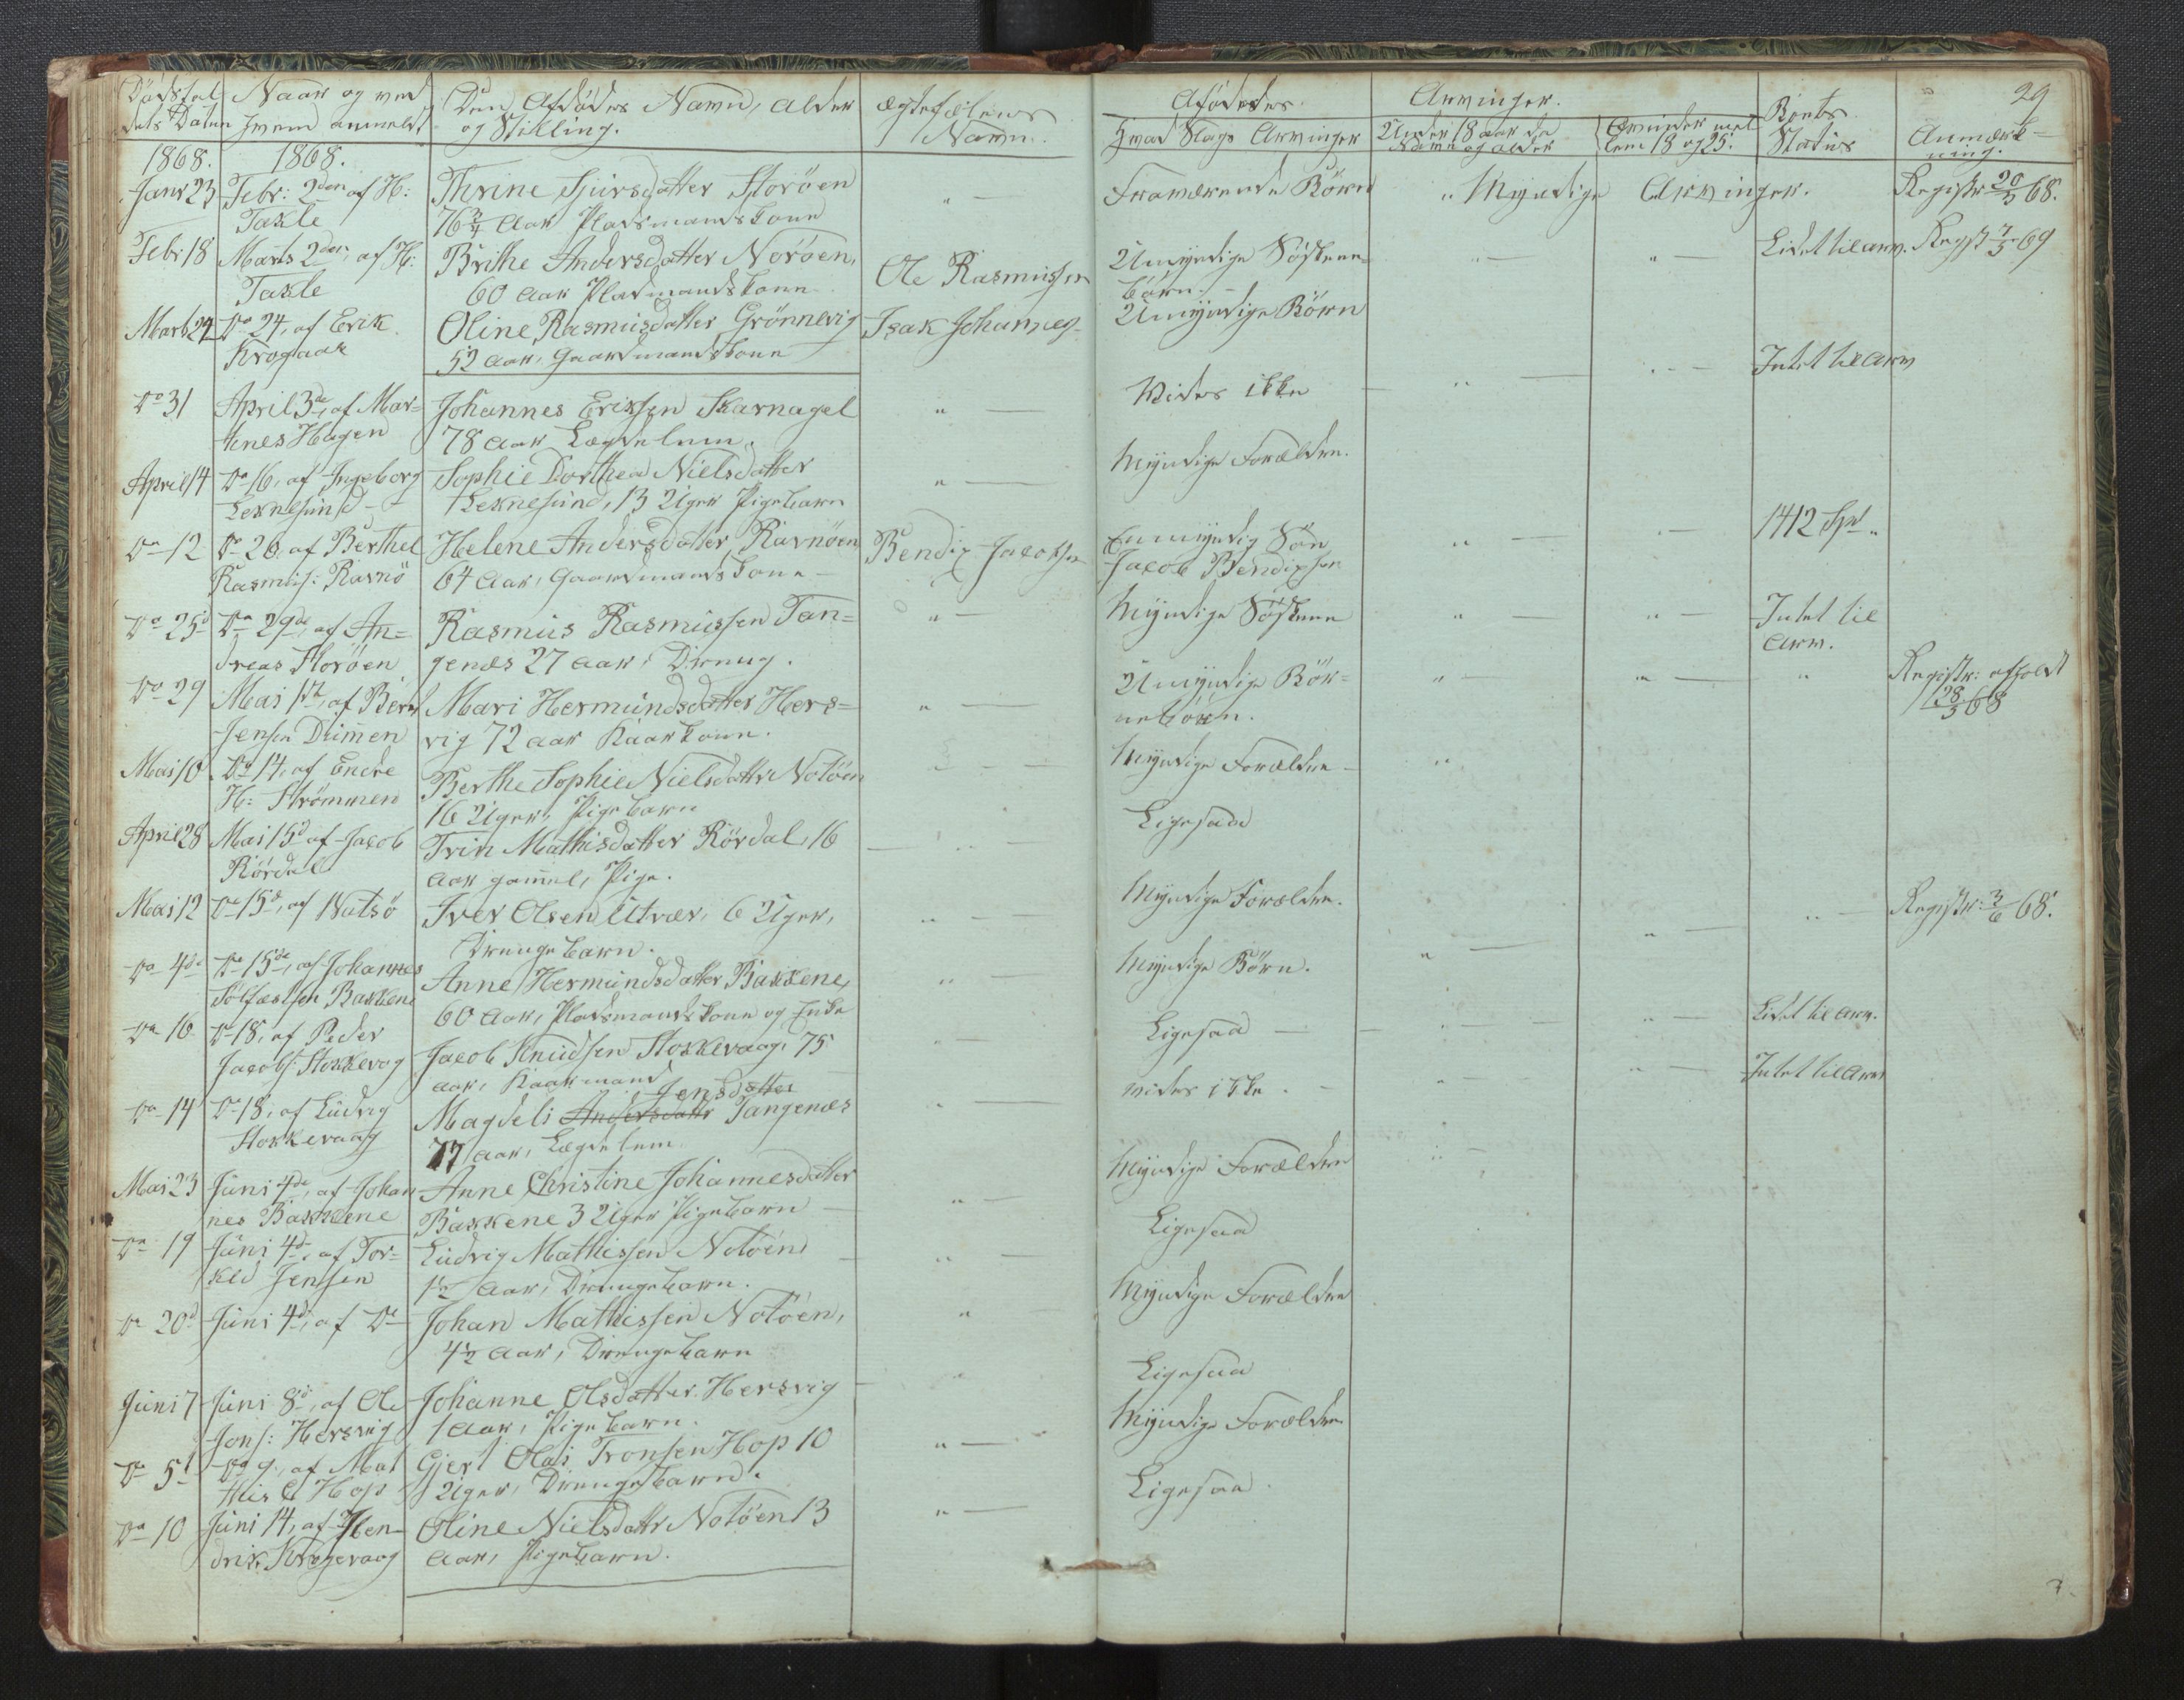 Dödsfal
dets Datum
Naar og ved
hvem anmeldt
Den Afdödes Navn, Alder
og Stilling.
Ægtefælens
Navn.
Afdødes
Hvad Slags Arvinger
Arvinger.
Under 18 aar da
Navn og alder
Arvinder mel-
lem 18 og 25.
Boets
Status
Anmærk-
ning.
29
1868.
1868.
Janr 23
Febr: 2den af H:
Takle
Thrine Sjursdatter Storöen
76 3/4 Aar Pladsmandskone
" —
Fraværende Börn
" Myndige
Arvinger.
Registr 20/3 68.
Febr 18
Marts 2den, af H:
Takle
Brithe Andersdatter Noröen,
60 Aar Pladsmandskone
Ole Rasmussen
Umyndige Söskene-
börn. -
" —
" —
Lidet til arv.
Regist 7/5 69
Marts 24
Do 24, af Erik
Krogaar
Oline Rasmusdatter Grönnevig
52 Aar, Gaardmandskone
Isak Johannes-
Umyndige Börn
Intet til Arv
Do 31
April 3de, af Mar-
thnes Hagen
Johannes Eriksen Skarnagel
78 Aar Lægdelem.
" —
Vides ikke
April 14
Do 16, af Ingeborg
Leknesund -
Sophie Dorthea Nielsdatter
Leknesund, 13 Uger Pigebarn
" —
Myndige Forældre.
Do 12
Do 20. af Berthel
Rasmus: Ravnö
Helene Andersdatter Ravnöen
64 Aar, Gaardmandskone -
Bendix Jacobsen
En myndig Sön
Jacob Bendixsen
" —
" —
1412 Spd "
Do 25d
Do 29de, af An-
dreas Storöen
Rasmus Rasmussen Tan-
genæs 27 Aar, Dreng.
" —
Myndige Söskene
" —
" —
Intet til
Arv.
Do 29
Mai 1st, af Bernt
Jensen Dūmen
Mari Hermundsdatter Hers-
vig 72 Aar Kaarkone.
" —
Umyndige Bör-
nebörn.
" —
" —
"
Registr: afholdt
28/5 68
Mai 10
Do 14, af Endre
H: Strömmen
Berthe Sophie Nielsdattr Notöen
16 Uger, Pigebarn
Myndige Forældre -
"
April 28
Mai 15d af Jacob
Rördal
Trin Mathisdatter Rördal, 16
Aar gam̄el, Pige.
Ligesaa
Mai 12
Do 15d, af Natsö
Iver Olsen Utvær, 6 Uger,
Drengebarn.
" —
Myndige Forældre.
" —
Registr: 3/6 68.
Do 4de
Do 15de, af Johannes
Sölfæstsen Bakkene
Anne Hermundsdatter Bakkene,
60 Aar, Pladsmandskone og Enke
" —
Myndige Börn.
" —
Do 16
Do 18, af Peder
Jacobs: Stokkevog
Jacob Knudsen Stokkevaag, 75
Aar, Kaarmand
" —
Ligesaa —
" —
Lidet til Arv.
Do 14
Do 18, af Ludvig
Stokkevaag
Jensdatter
Magdeli Andersdatr Tangenæs
77 Aar, Lægdelem
" —
vides ikke. -
" —
Intet til Arv
Mai 23
Juni 4de, af Johan
nes Bakkene
Anne Christine Johannesdatter
Bakkene 3 Uger Pigebarn
" —
Myndige Forældre
" —
Do 19
Juni 4d, af Tor-
kld Jensen
Ludvig Mathissen Notöen,
1½ Aar, Drengebarn.
" —
Ligesaa
Do 20d
Juni 4d, af Do
Johan Mathissen Notöen,
4½ Aar, Drengebarn
"
Myndige Forældre
Juni 7
Juni 8d, af Ole
Jons: Hersvig
Johanne Olsdatter Hersvig
1 Aar, Pigebarn.
Ligesaa
Do 5t
Do 9, af Mat
this C Hop
Gjert Olai Tronsen Hop 10
Uger, Drengebarn.
" —
Myndige Forældre
Do 10
Juni 14, af Hen-
drik Krogevaag
Oline Nielsdattr Notöen 13
Aar, Pigebarn.
" —
Ligesaa.